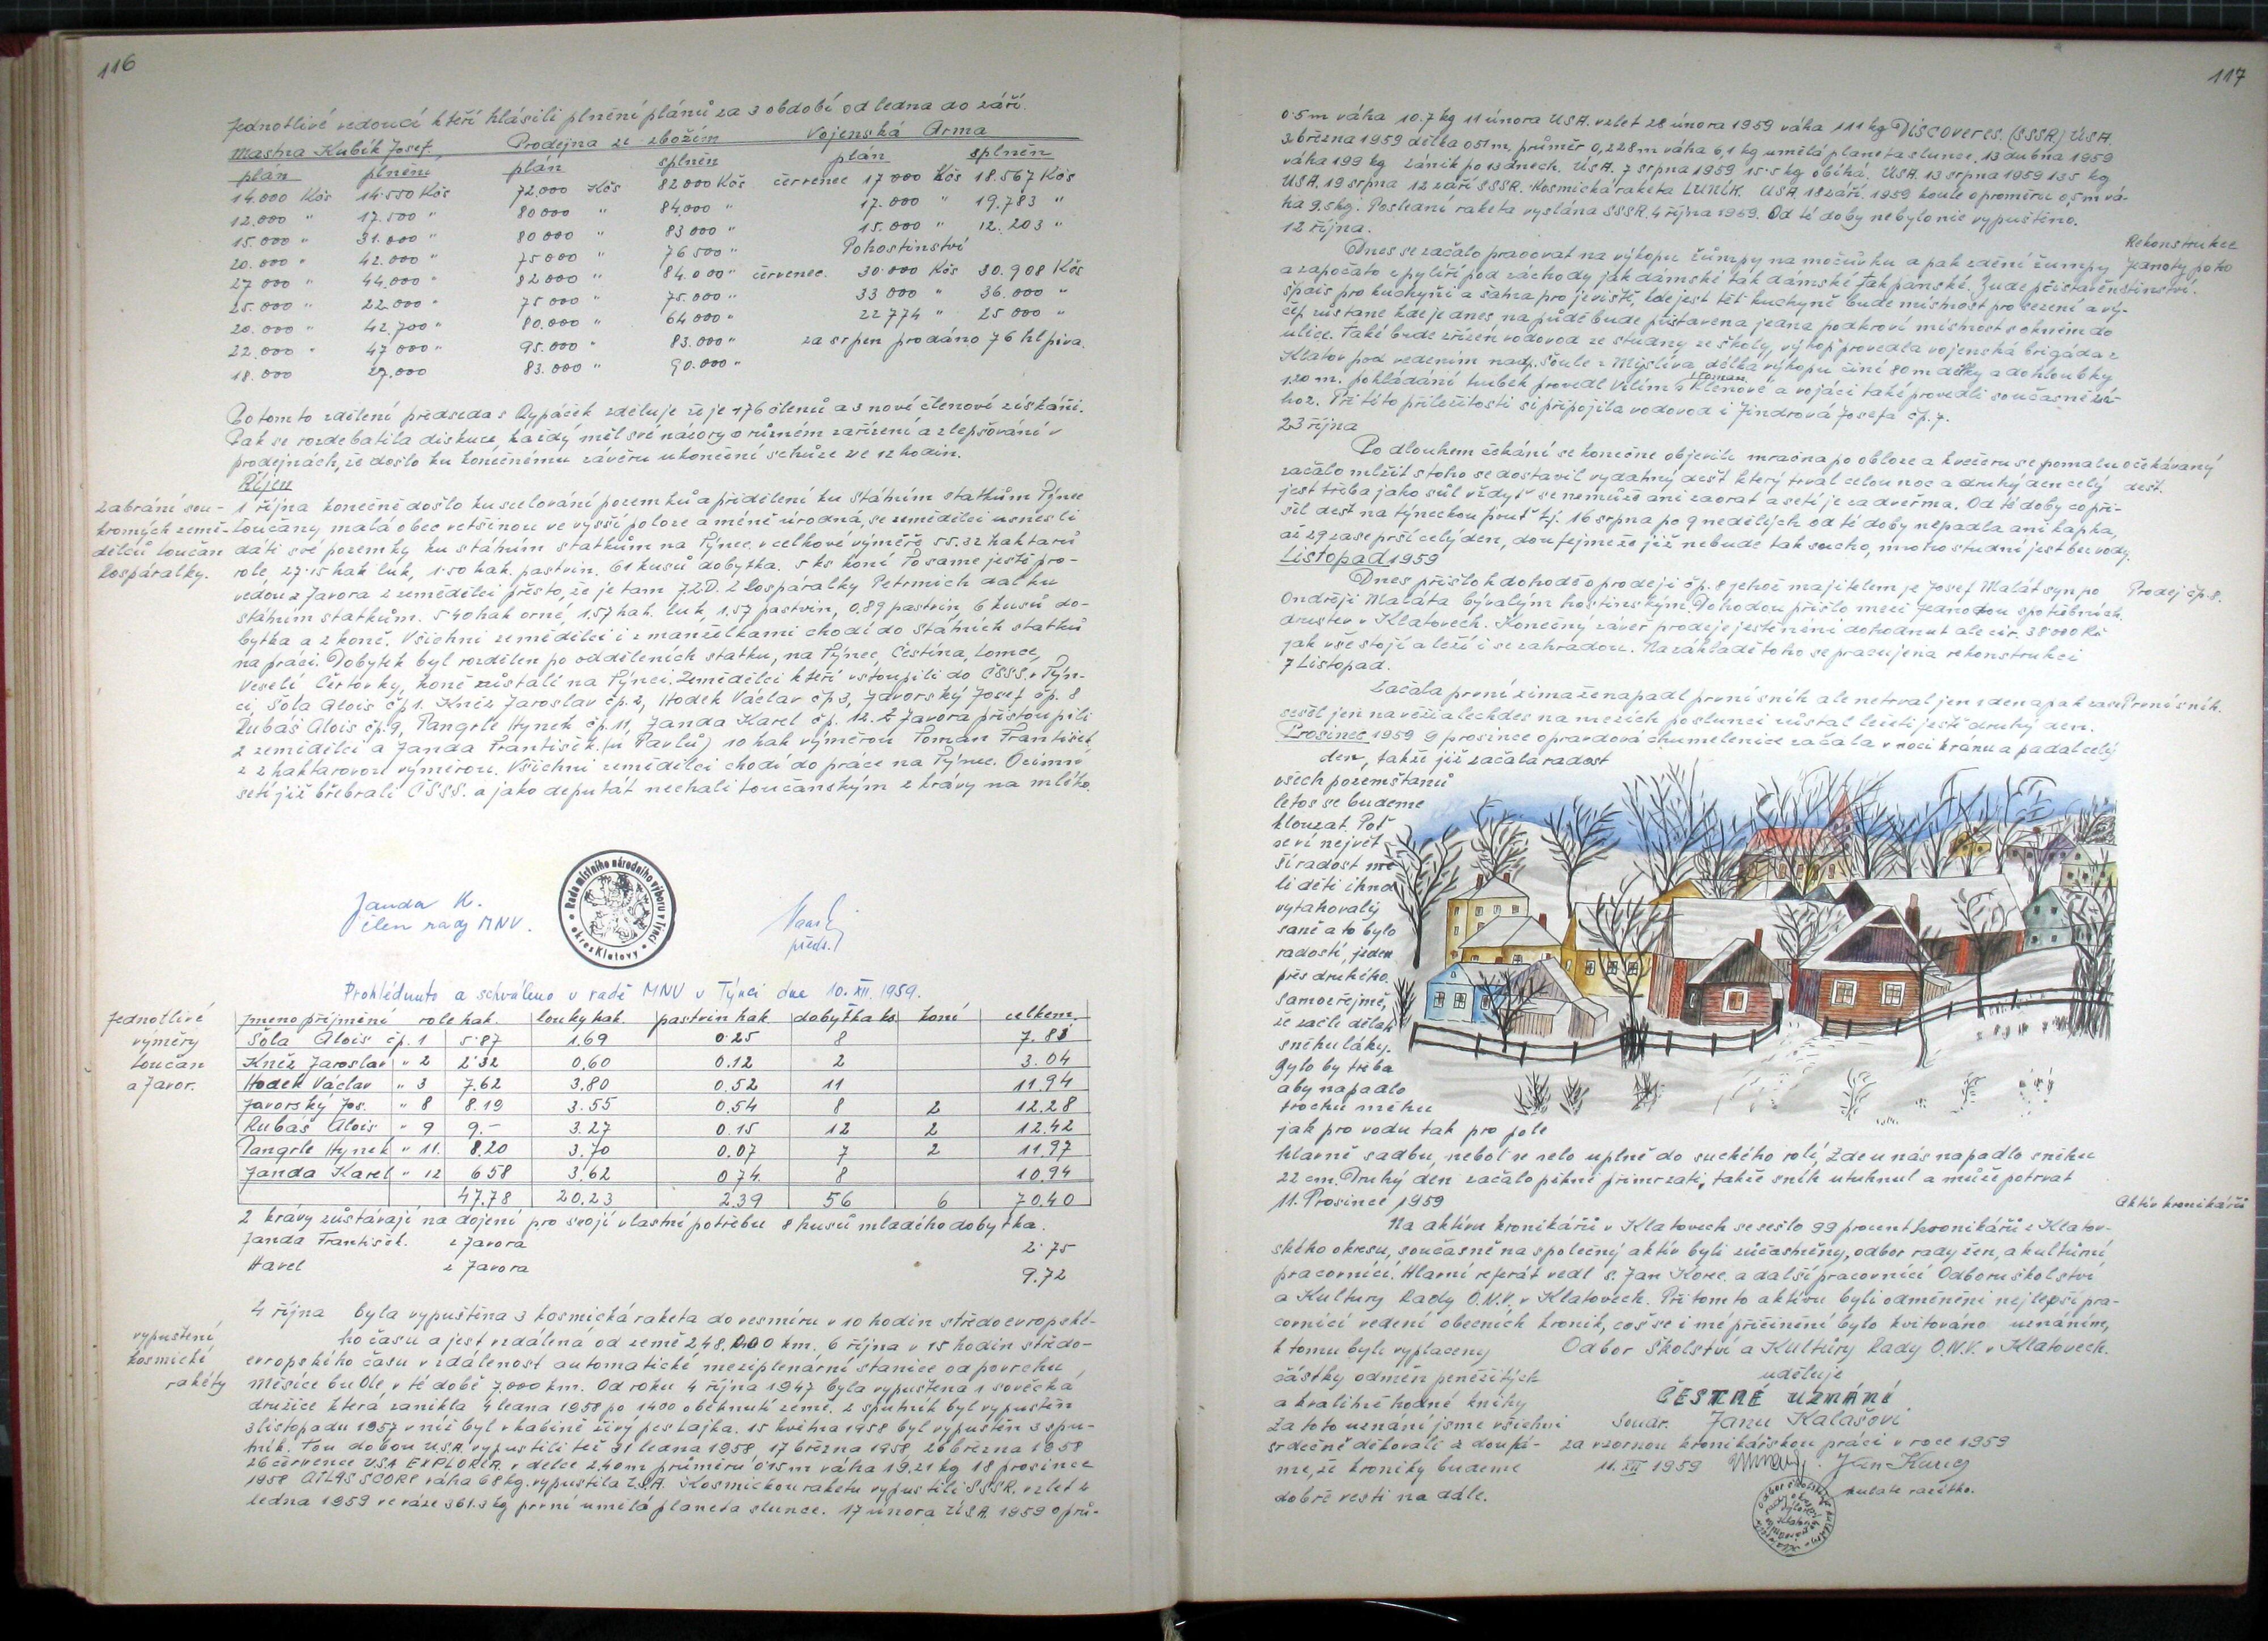 116
Jednotlivé vedoucí kteří hlásili plnění plánů za 3 období od ledna do září.
Mastna Kubík Josef. Prodejna ze zbožím Vojenská Arma
plán plnění plán splněn plán splněn
14.000 Kčs 14.550 Kčs 72.000 Kčs 82000 Kčs červenec 17000 Kčs 18.567 Kčs
12.000 " 17.500 " 80000 " 84.000 " 17.000 " 19.783 "
15.000 " 31.000 " 80000 " 83000 " 15.000 " 12.203 "
20.000 " 42.000 " 75000 " 76500 " Pohostinství
27000 " 44.000 " 82000 " 84.000 " červenec. 30.000 Kčs 30.908 Kčs
25.000 " 22.000 " 75000 " 75.000 " 33000 " 36.000 "
20.000 " 42.700 " 80.000 " 64000 " 22774 " 25000 "
22.000 " 47000 " 95.000 " 83.000 " za srpen prodáno 76 hl piva.
18.000 27.000 83.000 " 90.000 "
Po tomto sdělení předseda s Rypáček sděluje že je 176 členů a 3 noví členové získáni.
Pak se rozdebatila diskuce, každý měl své názory o různém zařízení a zlepšování v
prodejnách, že došlo ku konečnému závěru ukončení schůze ve 12 hodin.
Říjen
Zabrání sou-
kromých země-
dělců Loučan
Rospáralky.
1 října konečně došlo ku scelování pozemků a přidělení ku Státním statkům Týnec
Loučany malá obec většinou ve vyšší poloze a méně úrodná, se zemědělci usnesli
dáti své pozemky ku státním statkům na Týnec v celkové výměře 55.32 haktarů
role, 27.15 hak luk, 1.50 hak. pastvin. 61 kusů dobytka. 5 ks koní To samé ještě pro-
vedou z Javora 2 zemědělci přesto, že je tam J.Z.D. z Rospáralky Petrmich dal ku
státním statkům. 5 40 hak orné, 1.57 hak. luk, 1.57 pastvin, 0.89 pastvin, 6 kusů do-
bytka a 2 koně. Všichni zemědělci i z manželkami chodí do Státních statků
na práci. Dobytek byl rozdělen po odděleních statku, na Týnec, Čestina, Lomec,
Veselí Čertovky, koně zůstali na Týnci. Zemědělci kteří vstoupili do ČSSS. v Týn-
ci, Šola Alois čp 1. Kněz Jaroslav čp. 2, Hodek Václav čp 3, Javorský Josef čp. 8
Rubáš Alois čp. 9, Pangrle Hynek čp. 11, Janda Karel čp. 12. Z Javora přistoupili
2 zemědělci a Janda František. (u Pavlů) 10 hak výměrou Toman František,
z 2 haktarovou výměrou. Všichni zemědělci chodí do práce na Týnec. Ozimné
setí již přebrali ČSSS. a jako deputát nechali loučanským 2 krávy na mléko.
Janda K.
člen rady MNV.
Rada místního národního výboru v Týnci
okres Klatovy
předs.
Prohlédnuto a schváleno v radě MNV v Týnci dne 10. XII. 1959.
Jednotlivé
výměry
Loučan
a Javor.
Jmeno příjmění role hak. louky hak. pastvin hak. dobytka ks koní celkem.
Šola Alois čp. 1 5.87 1.69 0.25 8 7.81
Kněz Jaroslav " 2 2.32 0.60 0.12 2 3.04
Hodek Václav " 3 7.62 3.80 0.52 11 11.94
Javorský Jos. " 8 8.19 3.55 0.54 8 2 12.28
Rubáš Alois " 9 9.- 3.27 0.15 12 2 12.42
Pangrle Hynek " 11. 8.20 3.70 0.07 7 2 11.97
Janda Karel " 12 6 58 3.62 0 74. 8 10.94
47.78 20.23 2.39 56 6 70.40
2 krávy zůstávají na dojení pro svojí vlastní potřebu 8 kusů mladého dobytka.
Janda František. z Javora 2.75
Havel z Javora 9.72
vypuštení
kosmické
rakéty
4 října byla vypuštěna 3 kosmická raketa do vesmíru v 10 hodin středoevropské-
ho času a jest vzdálená od země 248.000 km. 6 října v 15 hodin středo-
evropského času vzdálenost automatické meziplenární stanice od povrchu
Měsíce bude, v té době 7.000 km. Od roku 4 října 1947 byla vypuštena 1 sovětská
družice která zanikla 4 ledna 1958 po 1400 oběhnutí země. 2 sputnik byl vypuštěn
3 listopadu 1957 v níž byl v kabině živý pes Lajka. 15 května 1958 byl vypuštěn 3 spu-
tnik. Tou dobou U.S.A. vypustili též 31 ledna 1958, 17 března 1958, 26 března 1958
26 července USA EXPLORER. v délce 2,40m průměru 0.15m váha 19.21 kg 18 prosince
1958 ATLAS SCORE váha 68 kg. vypustila U.S.A. Kosmickou raketu vypustili SSSR. vzlet 2
ledna 1959 ve váze 361.3 kg první umělá planeta slunce. 17 února USA 1959 o prů-
117
0.5m váha 10.7 kg 11 února USA. vzlet 28 února 1959 váha 111 kg DISCOVERES. (SSSR) USA.
3 března 1959 délka 0 51m, průměr 0,228m váha 6,1 kg umělá planeta slunce, 13 dubna 1959
váha 199 kg zánik po 13 dnech. USA. 7 srpna 1959 15.5 kg obíhá. USA. 13 srpna 1959 135 kg
USA. 19 srpna 12 září SSSR. Kosmická raketa LUNIK. USA 18 září. 1959 koule o proměru 0,5 m vá-
ha 9.5 kg. Poslední raketa vyslána SSSR. 4 října 1959. Od té doby nebylo nic vypuštěno.
12 října.
Rekonstrukce
Jednoty poho
stinství.
Dnes se začalo pracovat na výkopu žumpy na močůvku a pak zdění žumpy
a započato z pylíři pod záchody jak dámské tak pánské. Zude přistavěn
špais pro kuchyňi a šatna pro jeviště, kde jest též kuchyně bude místnost pro sezení a vý-
čep zůstane kde je dnes na půdě bude přistavena jedna podkroví místnost s oknem do
ulice. Také bude zřízen vodovod ze studny ze školy, výkop provedla vojenská brigáda z
Klatov pod vedením nadp. Šoule z Myslíva délka výkopu činí 80 m délky a do hloubky
1.20 m. pohládání trubek provedl Vilím Toman z Klenové a vojáci také provedli současné zá-
hoz. Při této příležitosti si připojila vodovod i Jindrová Josefa čp. 7.
23 října
očekávaný
dešť.
Po dlouhem čekání se konečne objevila mračna po obloze a kvečeru se pomalu
začalo mlžit s toho se dostavil vydatný dešť který trval celou noc a druhý den celý
jest třeba jako sůl vždyť se nemůže ani zaorat a setí je za dveřma. Od té doby co při-
šel dešť na týneckou pouť tj. 16 srpna po 9 nedělých od té doby nepadla ani kapka,
až 29 zase prší celý den, doufejme že již nebude tak sucho, mnoho studní jest bez vody.
Listopad 1959
Prodej čp. 8.
Dnes přišlo k dohodě o prodeji čp. 8 jehož majitelem je Josef Malát syn po
Ondřeji Maláta bývalým hostinským. Dohodou přišlo mezi Jednotou spotřebních
družstev v Klatovech. Konečný závěr prodeje ještě není dohodnut ale cir. 38000 Kčs
jak vše stojí a leží i se zahradou. Na základě toho se pracuje na rekonstrukci
7 Listopad.
První sník.
Začala první zima že napadl první sník ale netrval jen 1 den a pak zase
sešel jen navěži a lechdes na mezích poslunci zůstal ležeti ještě druhý den.
Prosinec 1959 9 prosince opravdová chumelenice začala v noci k ránu a padal celý
den, takže již začala radost
všech pozemštanů
letos se budeme
klouzat. Pot
se ví největ
ší radost mě
li děti ihned
vytahovaly
sáně a to bylo
radosti, jeden
přes druhého.
Samozřejmě,
že začli dělat
sněhuláky.
Bylo by třeba
aby napadlo
trochu sněhu
jak pro vodu tak pro pole
hlavně sadbu, neboť se selo uplně do suchého rolí, Zde u nás napadlo sněhu
22 cm. Druhý den začalo pěkně přimrzati, takže sníh utuhnul a může potrvat
11. Prosince 1959
Aktiv kronikářů
Na aktivu kronikářů v Klatovech se sešlo 99 procent kronikářů z Klatov-
ského okresu, současně na společný aktiv byli zúčastněny, odbor rady žen, a kulturní
pracovníci. Hlavní referát vedl s. Jan Korec. a další pracovníci Odboru školství
a Kultury Rady O.N.V. v Klatovech. Při tomto aktivu byli odměněni nejlepší pra-
covníci vedení obecních kronik, což se i mé přičinění bylo kvitováno uznáním,
k tomu byli vyplaceny
částky odměn peněžitých
a kvalitně hodné knihy
Za toto uznání jsme všichni
srdečně děkovali a doufá-
me, že kroniky budeme
dobře vesti na dále.
Odbor Školství a Kultůry Rady O.N.V. v Klatovech.
uděluje
ČESTNÉ UZNÁNÍ
Soudr. Janu Kalašovi
za vzornou kronikářskou práci v roce 1959
11. XII 1959
kulaté razítko.